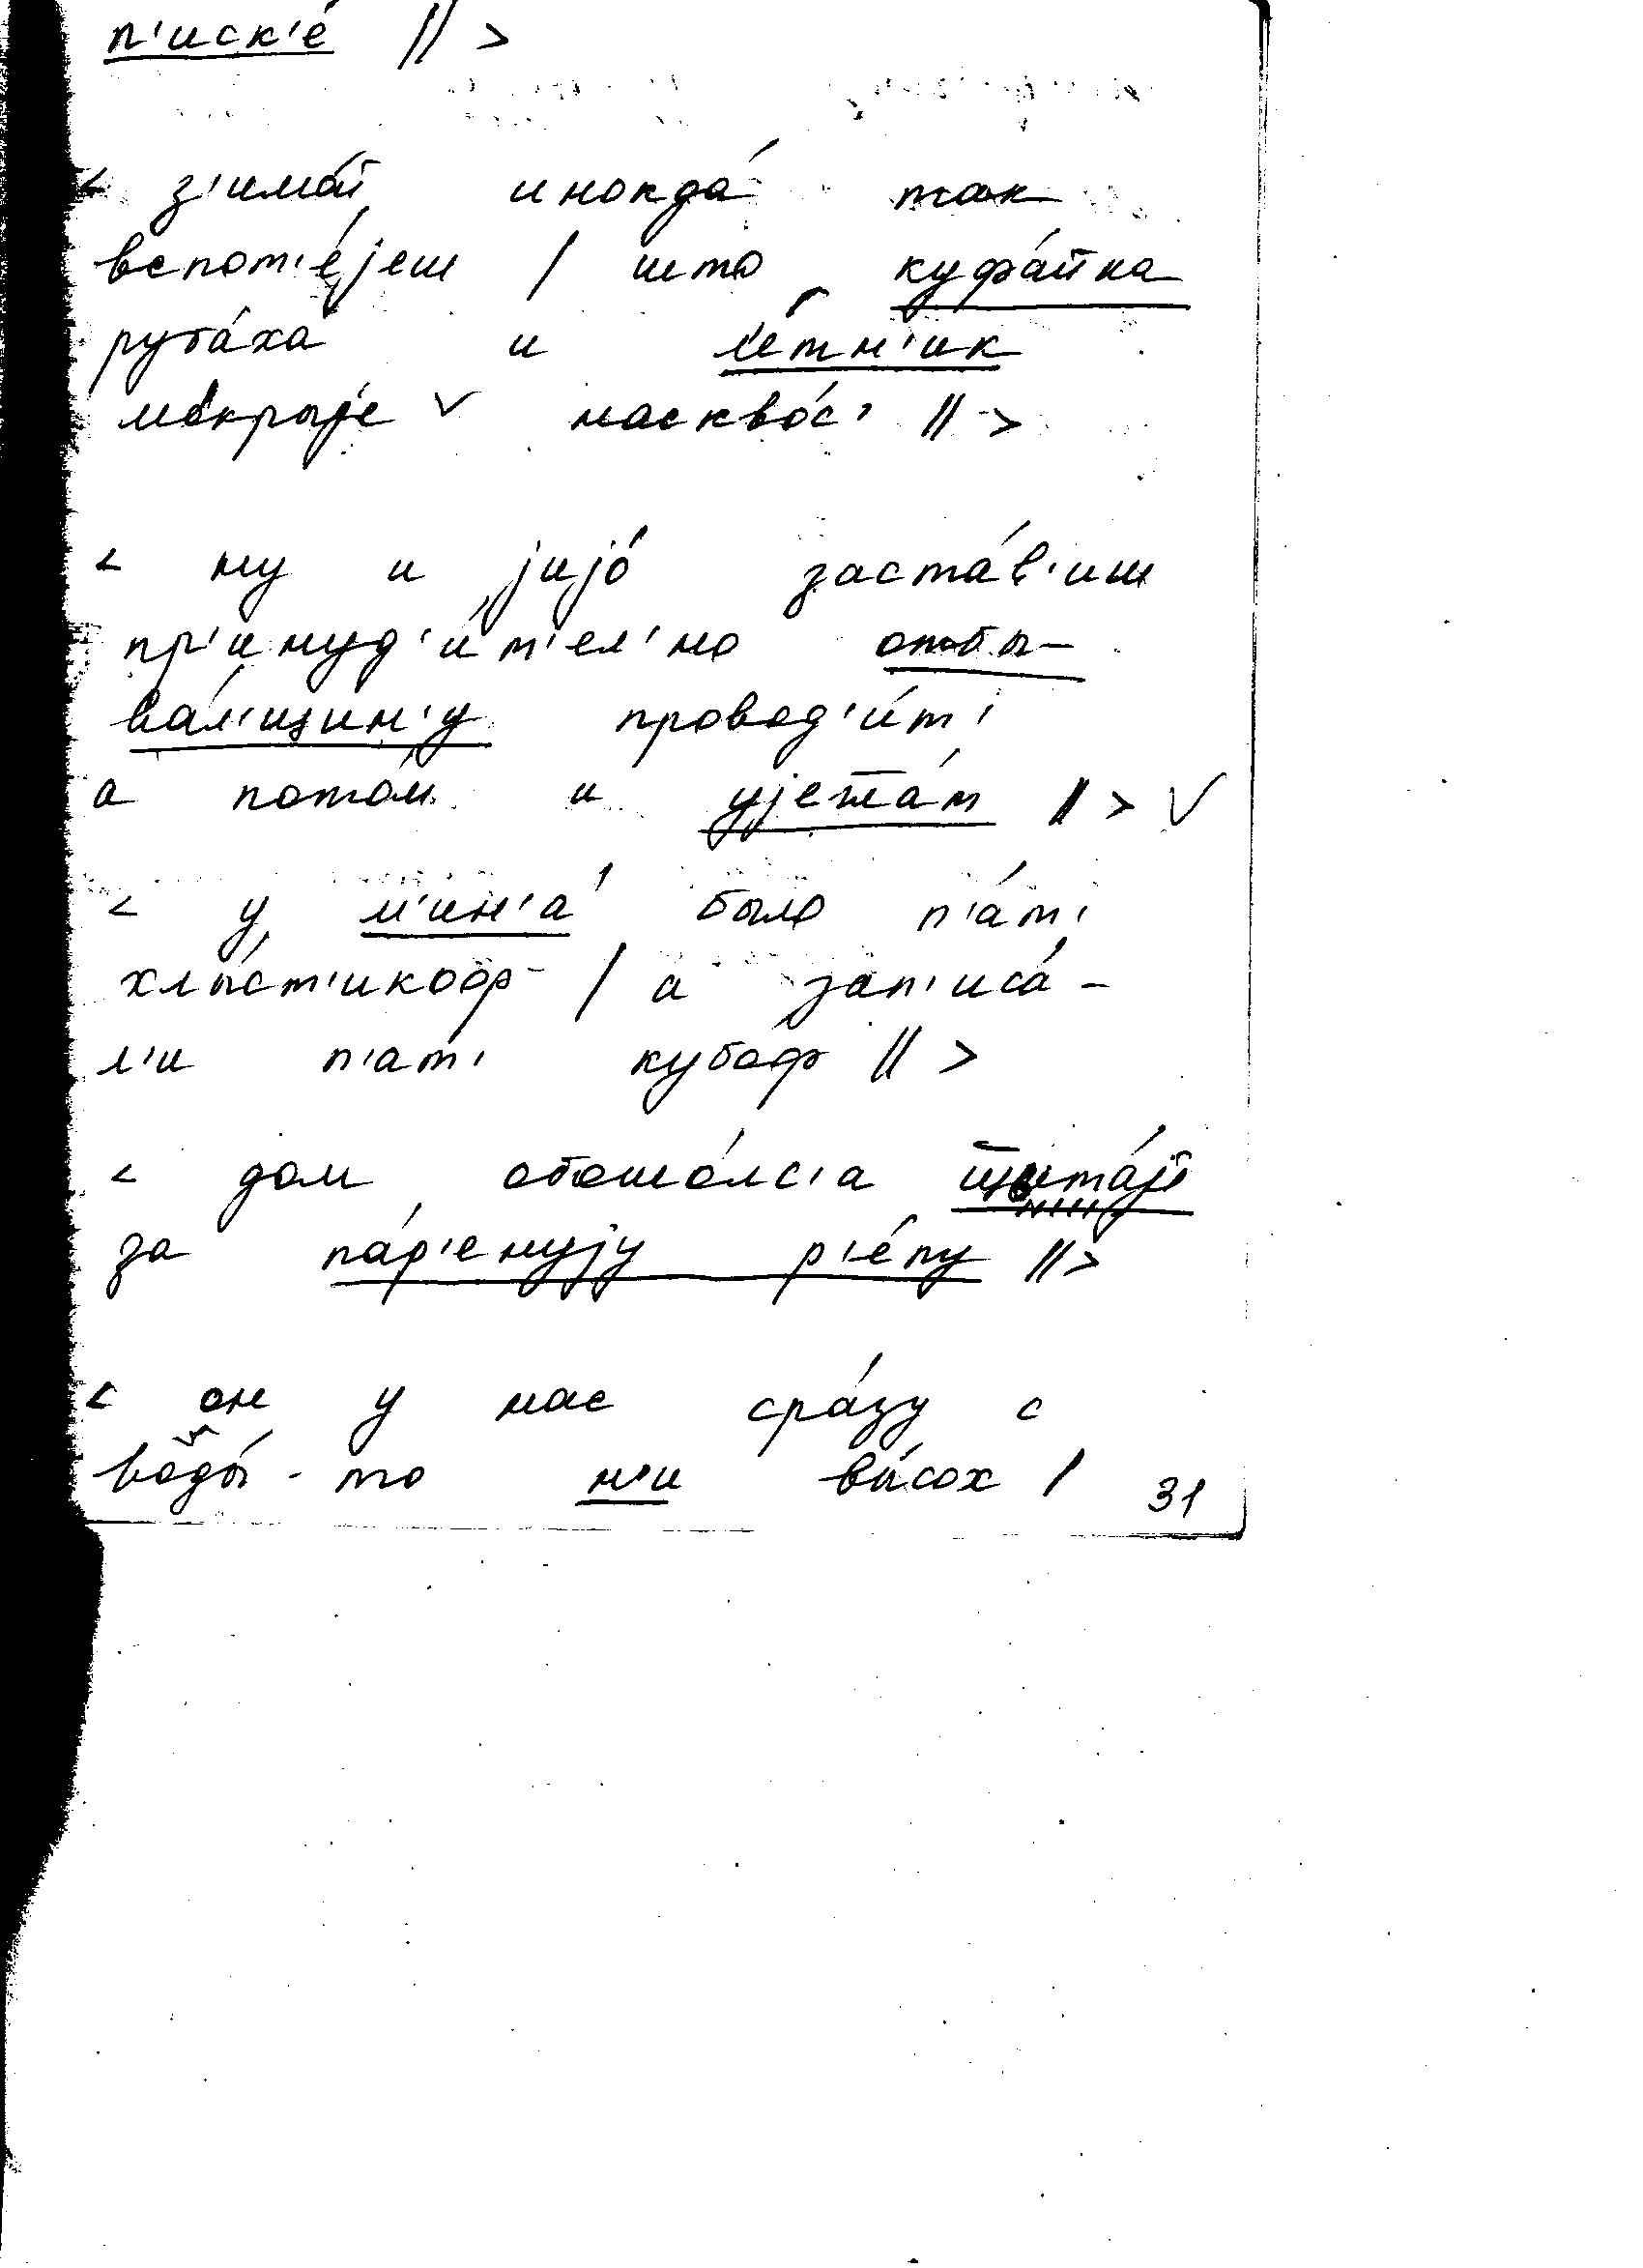 п'иск'е́ // >
< з'имо́й инокда́ так
вспот'е́jеш / што куфа́йка
руба́ха и ле́тн'ик
мо́крыjе ∨ наскво́с' // >
< ну и jиjо́ заста́в'иш
пр'инуд'и́т'ел'но отбы-
ва́л'щин'у провод'и́т'
а пото́м и уjежа́т // > ∨
< у м'ин'а́ было п'а́т'
хлы́ст'икооф / а зап'иса́-
л'и п'ат' кубоф // >
< дом обошо́лс'а
за па́р'енуjу р'е́пу // >
< он у нас сра́зу с
воды́-то н'и вы́сох /
31